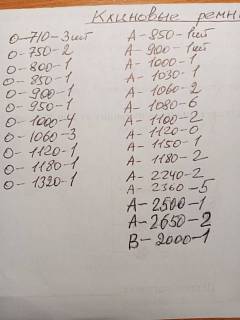 Клиновые ремн
О-710-3шт
О-750-2
О-800-1
О-850-1
О-900-1
О-950-1
О-1000-4
О-1060-3
О-1120-1
О-1180-1
О-1320-1
А-850-1шт
А-900-1шт
А-1000-1
А-1030-1
А-1060-2
А-1080-6
А-1100-2
А-1120-0
А-1150-1
А-1180-2
А-2240-2
А-2360-5
А-2500-1
А-2650-2
В-2000-1